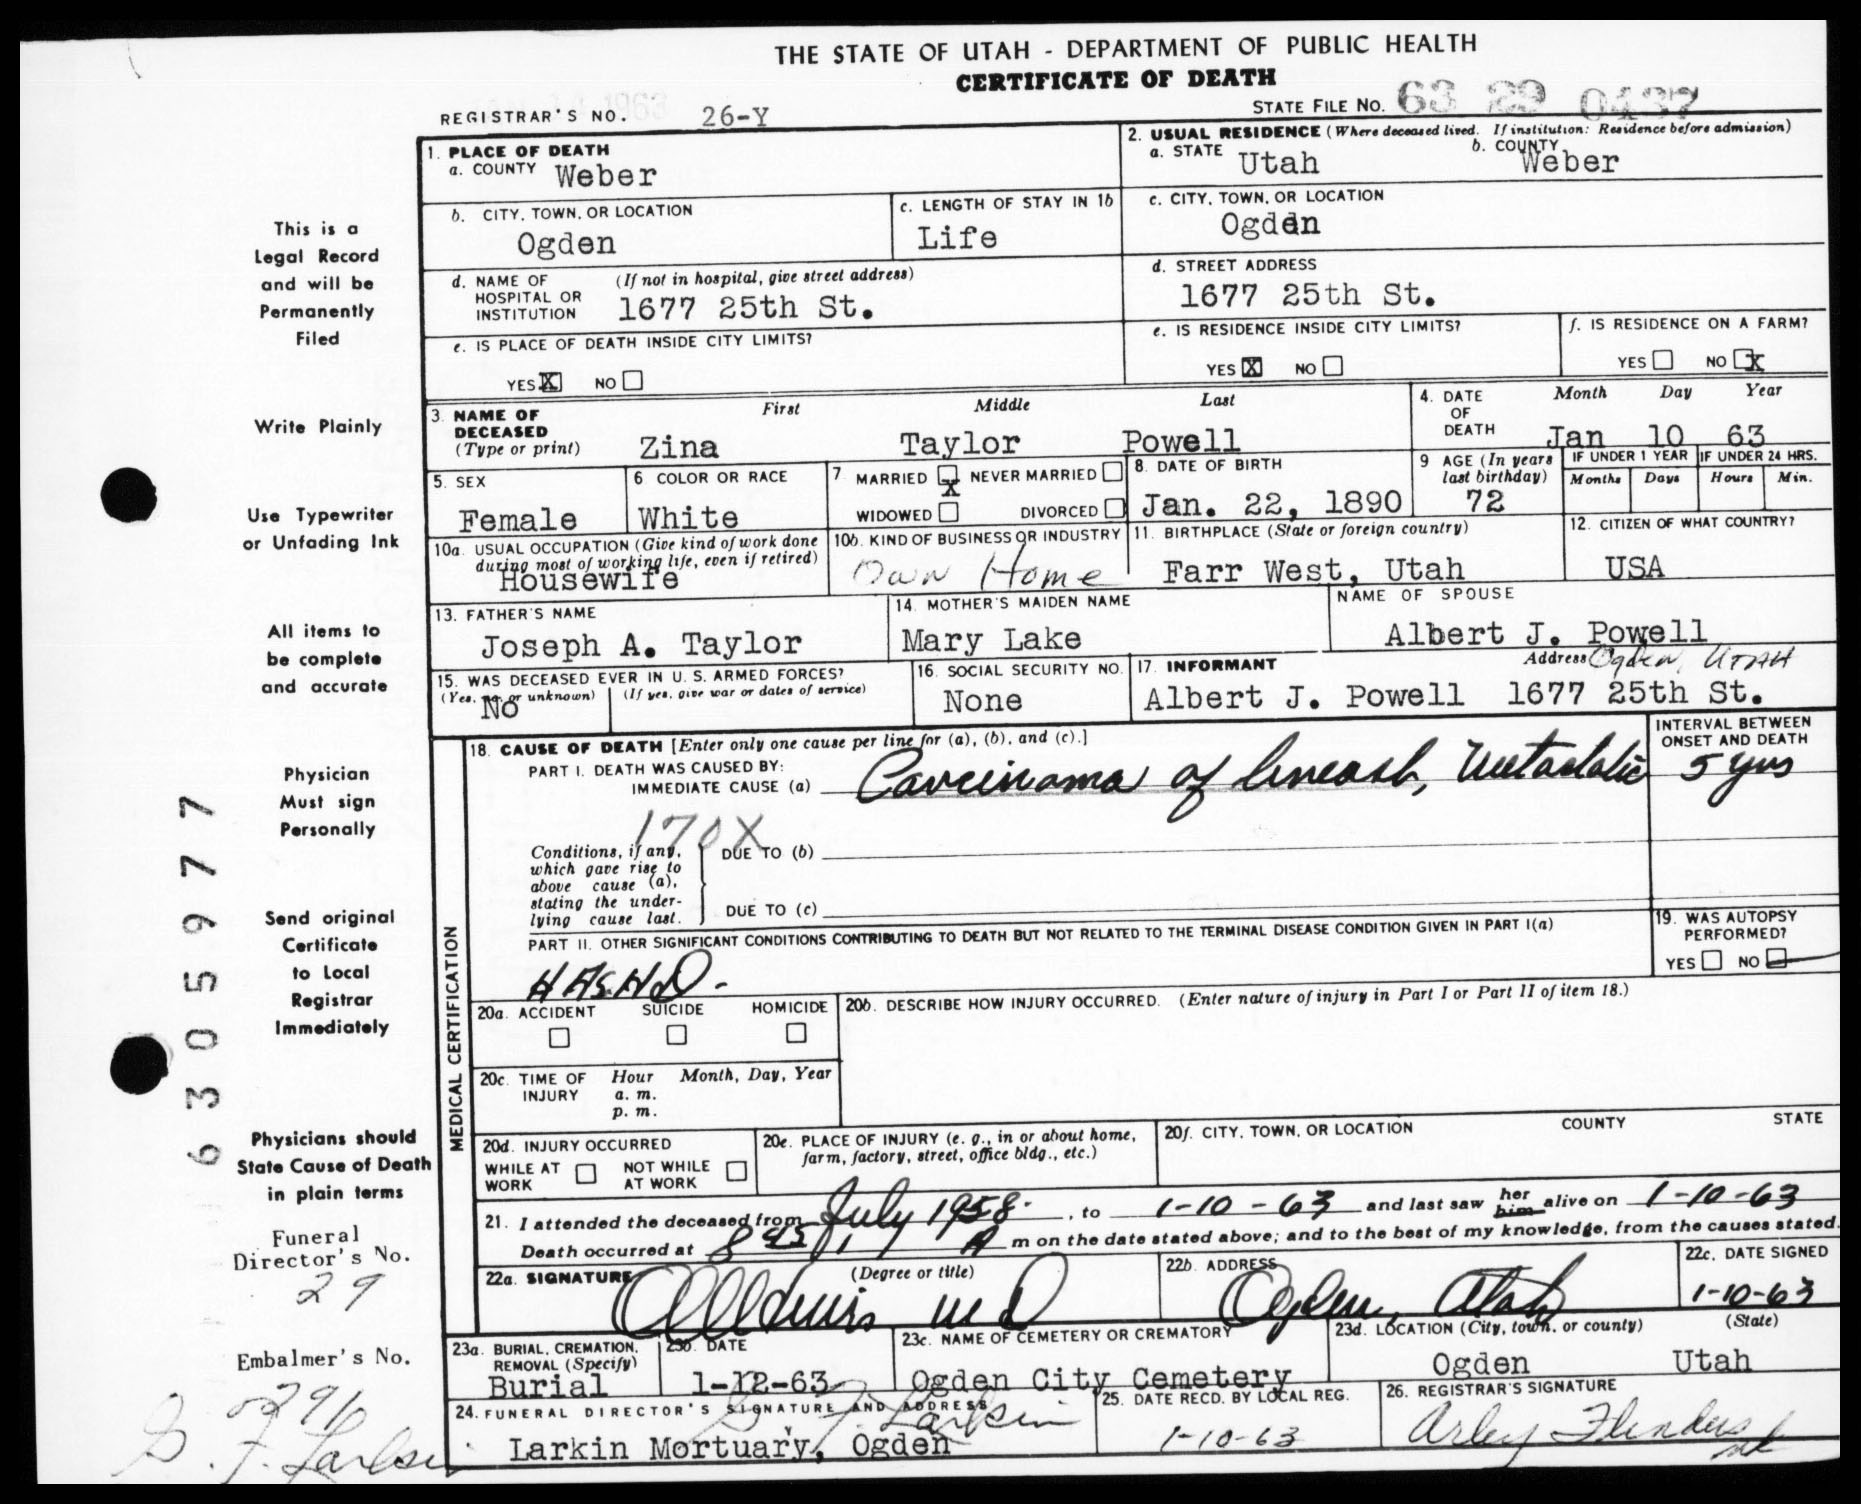 THE STATE OF UTAH - DEPARTMENT OF PUBLIC HEALTH
CERTIFICATE OF DEATH
REGISTRAR'S NO. 26-Y
STATE FILE NO. 63 29 0437
1. PLACE OF DEATH
a. COUNTY Weber
2. USUAL RESIDENCE (Where deceased lived. If institution: Residence before admission)
a. STATE Utah b. COUNTY Weber
b. CITY, TOWN, OR LOCATION
Ogden
c. LENGTH OF STAY IN 1b
Life
c. CITY, TOWN, OR LOCATION
Ogden
d. NAME OF HOSPITAL OR INSTITUTION (If not in hospital, give street address)
1677 25th St.
d. STREET ADDRESS
1677 25th St.
e. IS PLACE OF DEATH INSIDE CITY LIMITS?
YES X NO
e. IS RESIDENCE INSIDE CITY LIMITS?
YES X NO
f. IS RESIDENCE ON A FARM?
YES NO X
3. NAME OF DECEASED (Type or print)
First Middle Last
Zina Taylor Powell
4. DATE OF DEATH
Month Day Year
Jan 10 63
5. SEX
Female
6 COLOR OR RACE
White
7 MARRIED X NEVER MARRIED
WIDOWED DIVORCED
8. DATE OF BIRTH
Jan. 22, 1890
9 AGE (In years last birthday)
72
IF UNDER 1 YEAR
Months Days
IF UNDER 24 HRS.
Hours Min.
10a. USUAL OCCUPATION (Give kind of work done during most of working life, even if retired)
Housewife
10b. KIND OF BUSINESS OR INDUSTRY
Own Home
11. BIRTHPLACE (State or foreign country)
Farr West, Utah
12. CITIZEN OF WHAT COUNTRY?
USA
13. FATHER'S NAME
Joseph A. Taylor
14. MOTHER'S MAIDEN NAME
Mary Lake
NAME OF SPOUSE
Albert J. Powell
15. WAS DECEASED EVER IN U. S. ARMED FORCES?
(Yes, no, or unknown) (If yes, give war or dates of service)
No
16. SOCIAL SECURITY NO.
None
17. INFORMANT Address Ogden, UTAH
Albert J. Powell 1677 25th St.
MEDICAL CERTIFICATION
18. CAUSE OF DEATH [Enter only one cause per line for (a), (b), and (c).]
PART I. DEATH WAS CAUSED BY:
IMMEDIATE CAUSE (a) Carcinoma of breast, Metastatic
INTERVAL BETWEEN ONSET AND DEATH
5 yrs
170X
Conditions, if any, which gave rise to above cause (a), stating the underlying cause last.
DUE TO (b)
DUE TO (c)
PART II. OTHER SIGNIFICANT CONDITIONS CONTRIBUTING TO DEATH BUT NOT RELATED TO THE TERMINAL DISEASE CONDITION GIVEN IN PART I(a)
19. WAS AUTOPSY PERFORMED?
YES NO
20a. ACCIDENT SUICIDE HOMICIDE
20b. DESCRIBE HOW INJURY OCCURRED. (Enter nature of injury in Part I or Part II of item 18.)
20c. TIME OF INJURY
Hour Month, Day, Year
a. m.
p. m.
20d. INJURY OCCURRED
WHILE AT WORK NOT WHILE AT WORK
20e. PLACE OF INJURY (e. g., in or about home, farm, factory, street, office bldg., etc.)
20f. CITY, TOWN, OR LOCATION COUNTY STATE
21. I attended the deceased from July 1958, to 1-10-63 and last saw her him alive on 1-10-63
Death occurred at 8 45 A m on the date stated above; and to the best of my knowledge, from the causes stated.
22a. SIGNATURE (Degree or title)
MD
22b. ADDRESS
Ogden, Utah
22c. DATE SIGNED
1-10-63
23a. BURIAL, CREMATION, REMOVAL (Specify)
Burial
23b. DATE
1-12-63
23c. NAME OF CEMETERY OR CREMATORY
Ogden City Cemetery
23d. LOCATION (City, town, or county) (State)
Ogden Utah
24. FUNERAL DIRECTOR'S SIGNATURE AND ADDRESS
G F Larkin
Larkin Mortuary, Ogden
25. DATE RECD. BY LOCAL REG.
1-10-63
26. REGISTRAR'S SIGNATURE
Arley Flinders
This is a
Legal Record
and will be
Permanently
Filed
Write Plainly
Use Typewriter
or Unfading Ink
All items to
be complete
and accurate
Physician
Must sign
Personally
Send original
Certificate
to Local
Registrar
Immediately
Physicians should
State Cause of Death
in plain terms
Funeral
Director's No.
29
Embalmer's No.
G. F. Larkin
6305977